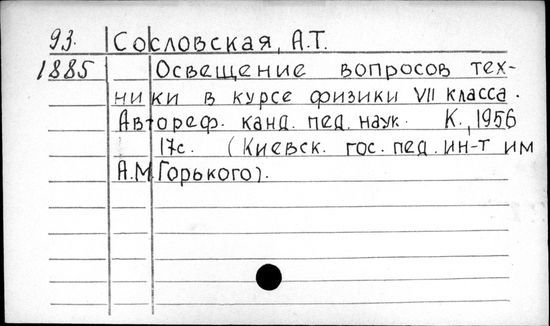 93. Сословская, А.Т.
1885 Освещение вопросов тех-
ники в курсе физики VII класса.
Автореф. канд. пед. наук. К., 1956
17с. (Киевск. гос. пед. ин-т им
А.М Горького).